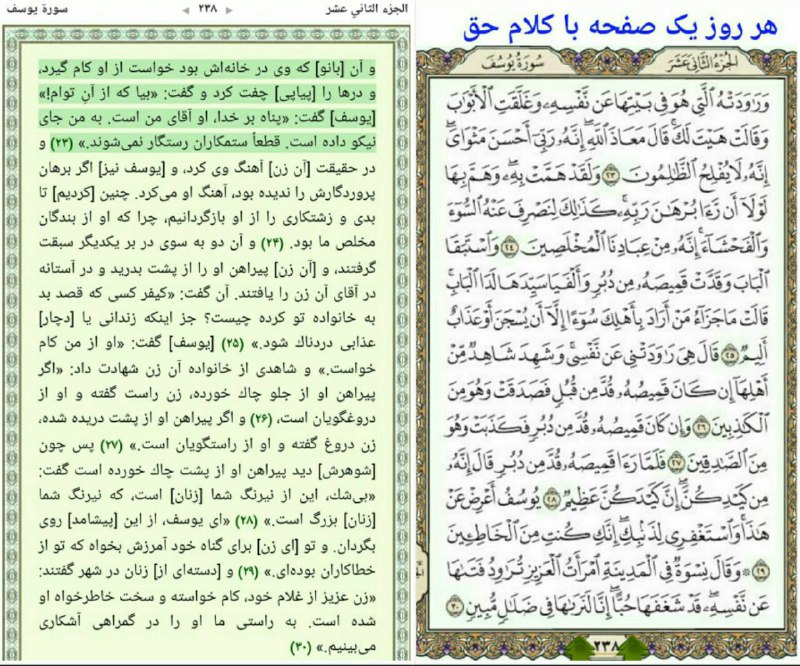 هر روز یک صفحه با کلام حق
الجزء الثانی عشر
سورة یوسف
وَرَاوَدَتْهُ الَّتِي هُوَ فِي بَيْتِهَا عَن نَّفْسِهِ وَغَلَّقَتِ الْأَبْوَابَ
وَقَالَتْ هَيْتَ لَكَ ۚ قَالَ مَعَاذَ اللَّهِ ۖ إِنَّهُ رَبِّي أَحْسَنَ مَثْوَايَ ۖ
إِنَّهُ لَا يُفْلِحُ الظَّالِمُونَ ٢٣ وَلَقَدْ هَمَّتْ بِهِ ۖ وَهَمَّ بِهَا
لَوْلَا أَن رَّءَا بُرْهَانَ رَبِّهِ ۚ كَذَٰلِكَ لِنَصْرِفَ عَنْهُ السُّوءَ
وَالْفَحْشَاءَ ۚ إِنَّهُ مِنْ عِبَادِنَا الْمُخْلَصِينَ ٢٤ وَاسْتَبَقَا
الْبَابَ وَقَدَّتْ قَمِيصَهُ مِن دُبُرٍ وَأَلْفَيَا سَيِّدَهَا لَدَا الْبَابِ ۚ
قَالَتْ مَا جَزَاءُ مَنْ أَرَادَ بِأَهْلِكَ سُوءًا إِلَّا أَن يُسْجَنَ أَوْ عَذَابٌ
أَلِيمٌ ٢٥ قَالَ هِيَ رَاوَدَتْنِي عَن نَّفْسِي ۚ وَشَهِدَ شَاهِدٌ مِّنْ
أَهْلِهَا إِن كَانَ قَمِيصُهُ قُدَّ مِن قُبُلٍ فَصَدَقَتْ وَهُوَ مِنَ
الْكَاذِبِينَ ٢٦ وَإِن كَانَ قَمِيصُهُ قُدَّ مِن دُبُرٍ فَكَذَبَتْ وَهُوَ
مِنَ الصَّادِقِينَ ٢٧ فَلَمَّا رَءَا قَمِيصَهُ قُدَّ مِن دُبُرٍ قَالَ إِنَّهُ
مِن كَيْدِكُنَّ ۖ إِنَّ كَيْدَكُنَّ عَظِيمٌ ٢٨ يُوسُفُ أَعْرِضْ عَنْ
هَٰذَا ۚ وَاسْتَغْفِرِي لِذَنبِكِ ۖ إِنَّكِ كُنتِ مِنَ الْخَاطِئِينَ
٢٩ ۞ وَقَالَ نِسْوَةٌ فِي الْمَدِينَةِ امْرَأَتُ الْعَزِيزِ تُرَاوِدُ فَتَاهَا
عَن نَّفْسِهِ ۖ قَدْ شَغَفَهَا حُبًّا ۖ إِنَّا لَنَرَاهَا فِي ضَلَالٍ مُّبِينٍ ٣٠
٢٣٨
الجزء الثاني عشر
٢٣٨
سورة یوسف
و آن [بانو] که وی در خانه‌اش بود خواست از او کام گیرد،
و درها را [پیاپی] چفت کرد و گفت: «بیا که از آنِ توام!»
[یوسف] گفت: «پناه بر خدا، او آقای من است. به من جای
نیکو داده است. قطعاً ستمکاران رستگار نمی‌شوند.» (۲۳) و
در حقیقت [آن زن] آهنگ وی کرد، و [یوسف نیز] اگر برهان
پروردگارش را ندیده بود، آهنگ او می‌کرد. چنین [کردیم] تا
بدی و زشتکاری را از او بازگردانیم، چرا که او از بندگان
مخلص ما بود. (۲۴) و آن دو به سوی در بر یکدیگر سبقت
گرفتند، و [آن زن] پیراهن او را از پشت بدرید و در آستانه
در آقای آن زن را یافتند. آن گفت: «کیفر کسی که قصد بد
به خانواده تو کرده چیست؟ جز اینکه زندانی یا [دچار]
عذابی دردناك شود.» (۲۵) [یوسف] گفت: «او از من کام
خواست.» و شاهدی از خانواده آن زن شهادت داد: «اگر
پیراهن او از جلو چاك خورده، زن راست گفته و او از
دروغگویان است، (۲۶) و اگر پیراهن او از پشت دریده شده،
زن دروغ گفته و او از راستگویان است.» (۲۷) پس چون
[شوهرش] دید پیراهن او از پشت چاك خورده است گفت:
«بی‌شك، این از نیرنگ شما [زنان] است، که نیرنگ شما
[زنان] بزرگ است.» (۲۸) «ای یوسف، از این [پیشامد] روی
بگردان. و تو [ای زن] برای گناه خود آمرزش بخواه که تو از
خطاکاران بوده‌ای.» (۲۹) و [دسته‌ای از] زنان در شهر گفتند:
«زن عزیز از غلام خود، کام خواسته و سخت خاطرخواه او
شده است. به راستی ما او را در گمراهی آشکاری
می‌بینیم.» (۳۰)